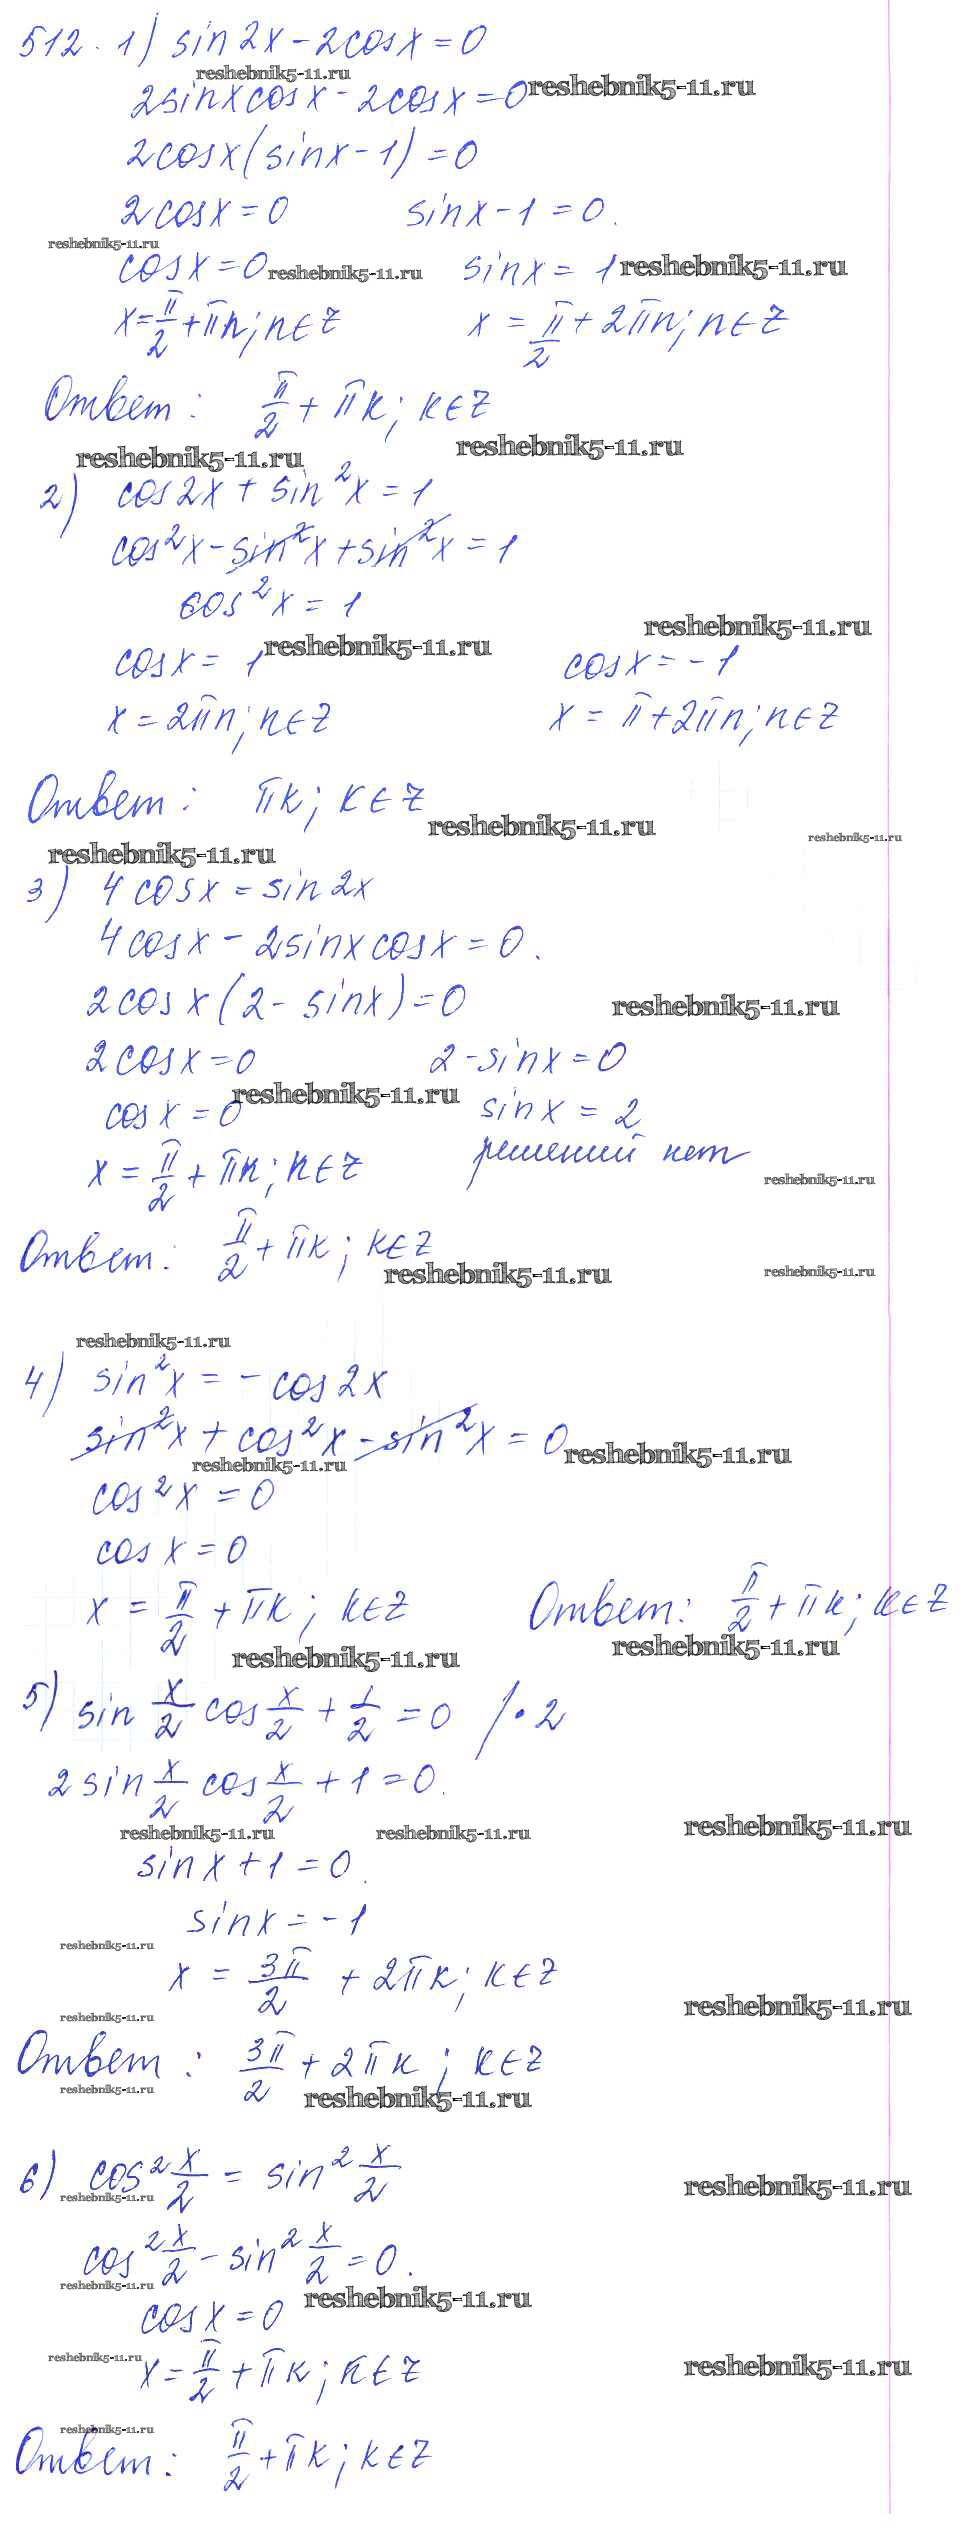 512. 1) sin2x - 2cosx = 0
reshebnik5-11.ru
2sinxcosx - 2cosx = 0 reshebnik5-11.ru
2cosx(sinx - 1) = 0
2cosx = 0 sinx - 1 = 0.
reshebnik5-11.ru
cosx = 0 reshebnik5-11.ru sinx = 1 reshebnik5-11.ru
x = π/2 + πn; n∈Z x = π/2 + 2πn; n∈Z
Ответ: π/2 + πk; k∈Z
reshebnik5-11.ru reshebnik5-11.ru
2) cos2x + sin²x = 1
cos²x - sin²x + sin²x = 1
cos²x = 1
reshebnik5-11.ru
cosx = 1 reshebnik5-11.ru cosx = -1
x = 2πn; n∈Z x = π + 2πn; n∈Z
Ответ: πk; k∈Z
reshebnik5-11.ru reshebnik5-11.ru
reshebnik5-11.ru
3) 4cosx = sin2x
4cosx - 2sinxcosx = 0.
2cosx(2 - sinx) = 0 reshebnik5-11.ru
2cosx = 0 2 - sinx = 0
reshebnik5-11.ru
cosx = 0 sinx = 2
x = π/2 + πk; k∈Z решений нет
reshebnik5-11.ru
Ответ: π/2 + πk; k∈Z
reshebnik5-11.ru reshebnik5-11.ru
reshebnik5-11.ru
4) sin²x = -cos2x
sin²x + cos²x - sin²x = 0 reshebnik5-11.ru
reshebnik5-11.ru
cos²x = 0
cosx = 0
x = π/2 + πk; k∈Z Ответ: π/2 + πk; k∈Z
reshebnik5-11.ru reshebnik5-11.ru
5) sin x/2 cos x/2 + 1/2 = 0 /·2
2sin x/2 cos x/2 + 1 = 0.
reshebnik5-11.ru reshebnik5-11.ru reshebnik5-11.ru
sinx + 1 = 0.
sinx = -1
reshebnik5-11.ru
x = 3π/2 + 2πk; k∈Z
reshebnik5-11.ru reshebnik5-11.ru
Ответ: 3π/2 + 2πk; k∈Z
reshebnik5-11.ru reshebnik5-11.ru
6) cos² x/2 = sin² x/2 reshebnik5-11.ru
reshebnik5-11.ru
cos² x/2 - sin² x/2 = 0.
reshebnik5-11.ru reshebnik5-11.ru
cosx = 0
reshebnik5-11.ru reshebnik5-11.ru
x = π/2 + πk; k∈Z
reshebnik5-11.ru
Ответ: π/2 + πk; k∈Z